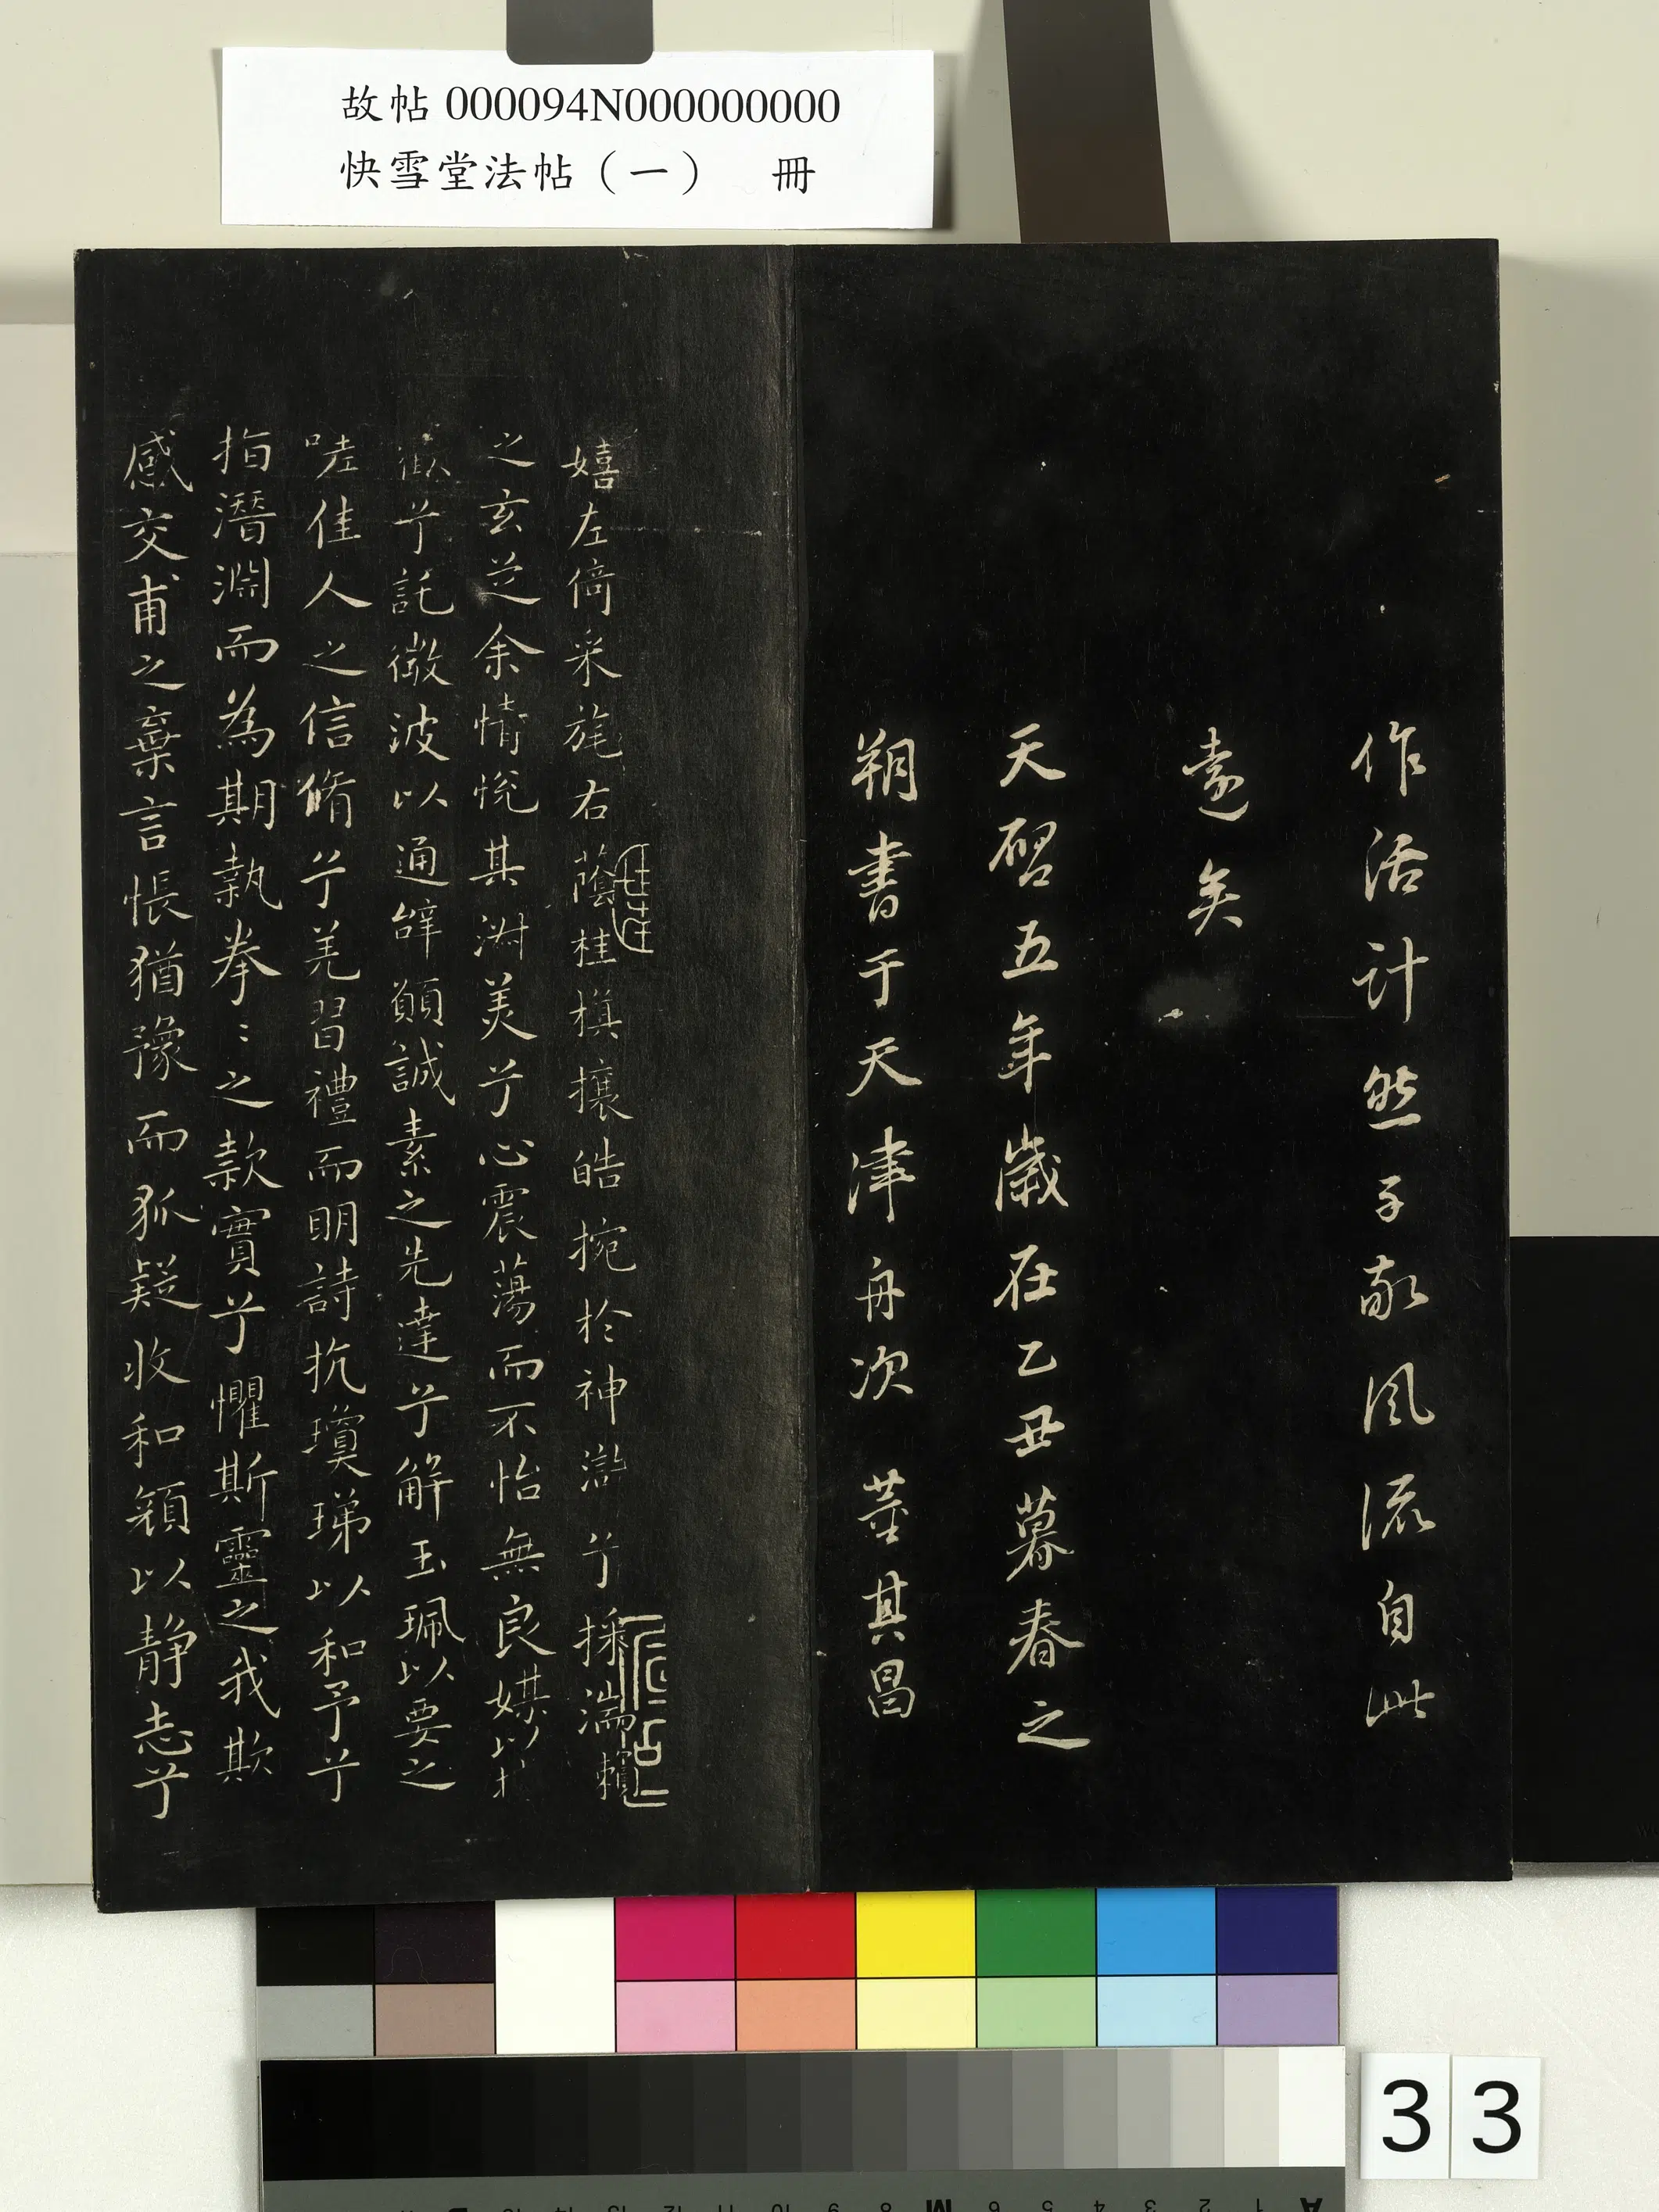 故帖 000094N000000000
快雪堂法帖（一） 冊
作活計然子敬風流自此
遠矣
天啓五年歲在乙丑暮春之
朔書于天津舟次 董其昌
嬉左倚采旄右蔭桂旗攘皓捥於神滸兮採湍瀨
之玄芝余情悅其淑美兮心震蕩而不怡無良媒以接
懽兮託微波以通辭願誠素之先達兮解玉珮以要之
嗟佳人之信脩兮羌習禮而明詩抗瓊珶以和予兮
指潛淵而為期執拳〻之款實兮懼斯靈之我欺
感交甫之棄言悵猶豫而狐疑收和顏以靜志兮
33